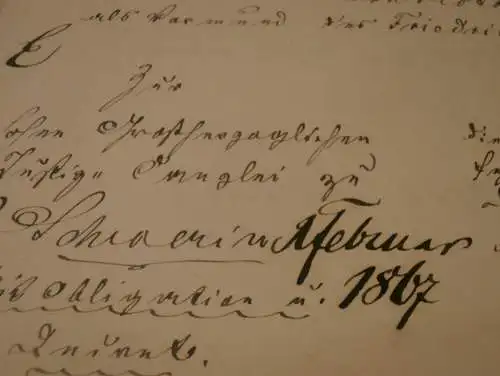 als Vormund des Friedri
E
Zur
hohen Großherzoglichen die
Justiz-Canzlei zu
Schwerin 1 Februar
Obligation u. 1867